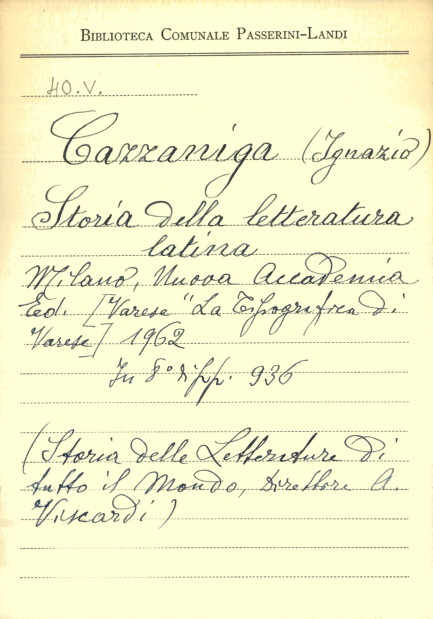 BIBLIOTECA COMUNALE PASSERINI-LANDI
40.V.
Cazzaniga (Ignazio)
Storia della letteratura
latina
Milano, Nuova Accademia
Ed. [Varese "La Tipografica di
Varese] 1962
In 8° di pp. 936
(Storia delle Letterature di
tutto il Mondo, Direttore A.
Viscardi)